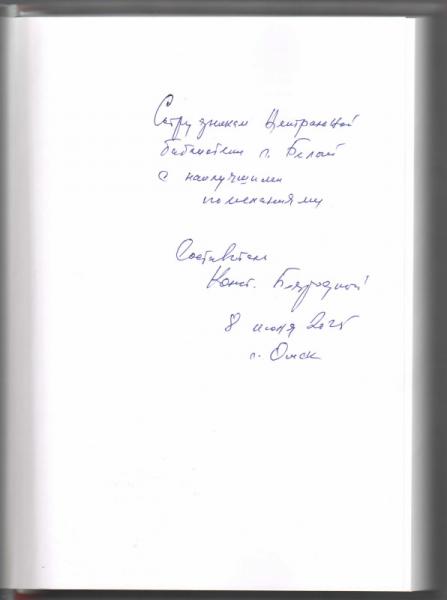 Сотрудникам Центральной
библиотеки г. Белой
с наилучшими
пожеланиями
Составитель
Конст.
8 июля 2025
г. Омск